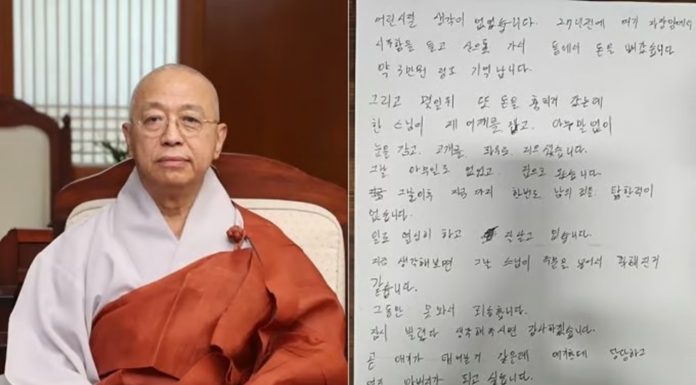 어린시절 생각이 없었습니다. 27년전에 여기 자장암에서
시주함을 들고 산으로 가서 통에서 돈을 빼갔습니다
약 3만원 정도 기억 납니다.
그리고 몇일뒤 또 돈을 훔치러 갔는데
한 스님이 제 어깨를 잡고, 아무말없이
눈을 감고, 고개를 좌우로 저으셨습니다.
그날 아무일도 없었고, 집으로 왔습니다.
그날이후 지금까지 한번도 남의 것을 탐한적이
없습니다.
일도 열심히 하고 잘살고 있습니다.
지금 생각해보면 그날 스님이 주문을 넣어서 착해진거
같습니다.
그동안 못와서 죄송합니다.
잠시 빌렸다 생각해주시면 감사하겠습니다.
곧 애기가 태어날거 같은데 애기한테 당당하고
멋진 아버지가 되고 싶습니다.